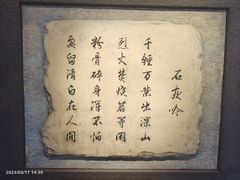 石灰吟
千锤万凿出深山
烈火焚烧若等闲
粉骨碎身浑不怕
要留清白在人间
2023/03/17 14:30